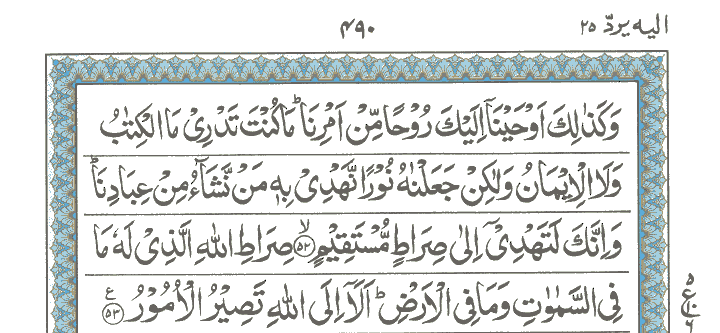 الیه یردّ ۲۵
۴۹۰
وَكَذٰلِكَ اَوْحَيْنَاۤ اِلَيْكَ رُوْحًا مِّنْ اَمْرِنَا ؕ مَا كُنْتَ تَدْرِىْ مَا الْكِتٰبُ
وَلَا الْاِيْمَانُ وَلٰكِنْ جَعَلْنٰهُ نُوْرًا نَّهْدِىْ بِهٖ مَنْ نَّشَآءُ مِنْ عِبَادِنَا ؕ
وَاِنَّكَ لَتَهْدِىْۤ اِلٰى صِرَاطٍ مُّسْتَقِيْمٍ ۙ‏﴿۵۲﴾ صِرَاطِ اللّٰهِ الَّذِىْ لَهٗ مَا
فِى السَّمٰوٰتِ وَمَا فِى الْاَرْضِ ؕ اَلَاۤ اِلَى اللّٰهِ تَصِيْرُ الْاُمُوْرُ ﴿۵۳﴾ ع
۵
ع ۱۰
۶